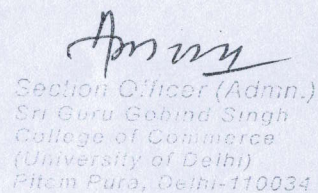 Section Officer (Admn.)
Sri Guru Gobind Singh
College of Commerce
(University of Delhi)
Pitam Pura, Delhi-110034